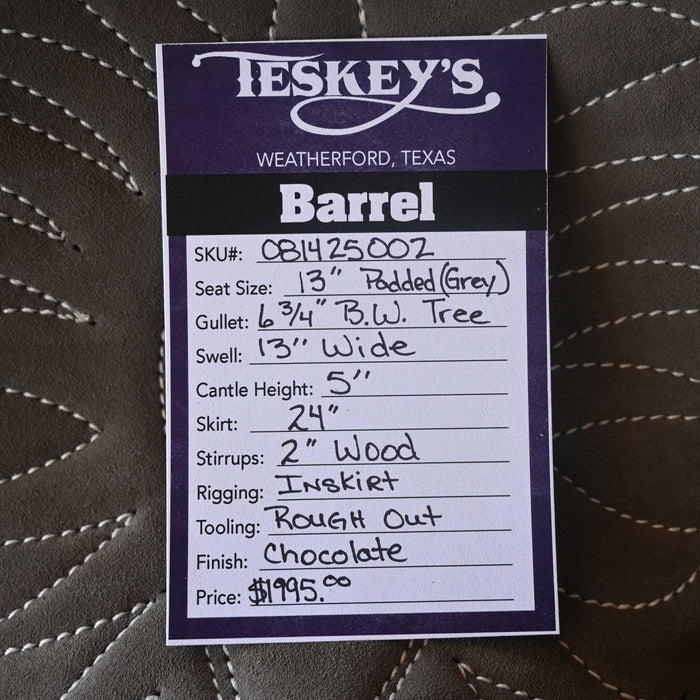 TESKEY'S
WEATHERFORD, TEXAS
Barrel
SKU#: 081425002
Seat Size: 13" Padded (Grey)
Gullet: 6 3/4" B.W. Tree
Swell: 13" Wide
Cantle Height: 5"
Skirt: 24"
Stirrups: 2" Wood
Rigging: Inskirt
Tooling: Rough Out
Finish: Chocolate
Price: $1995.00